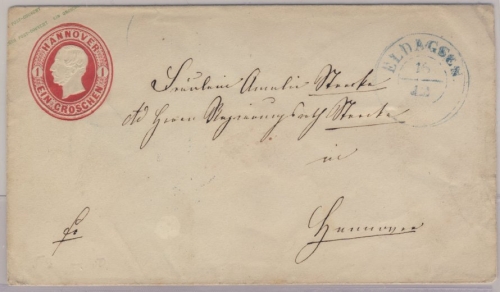 HANNOVER
1 1
EIN GROSCHEN
ELDAGSEN
16
12
Fräulein Amalie Strecke
Ad Herrn Regierungsrath Strecke
in
Hannover
fr